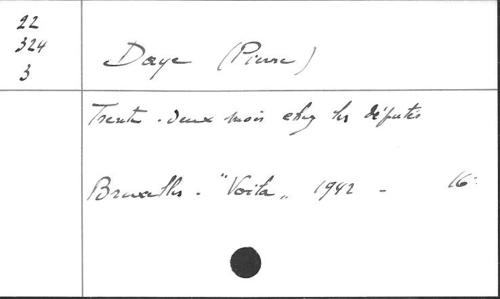 22
324
3
Daye (Pierre)
Trente-deux mois chez les députés
Bruxelles - "Voilà" 1942 - 16°